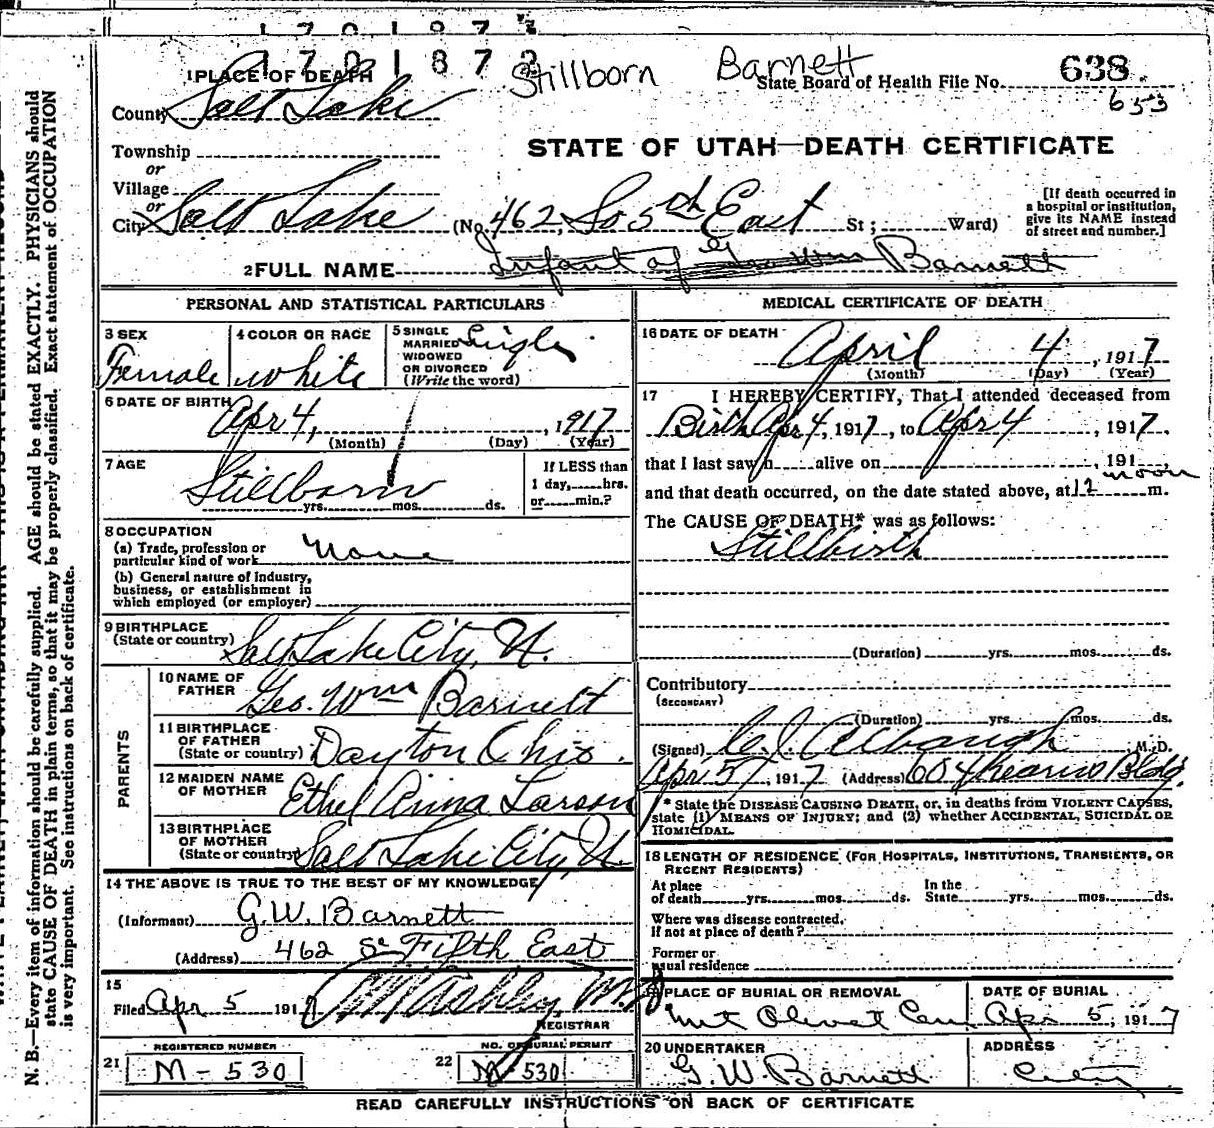 1 7 0 1 8 7 3
1 7 0 1 8 7 2
Stillborn Barnett
1 PLACE OF DEATH
State Board of Health File No. 638
653
County Salt Lake
STATE OF UTAH—DEATH CERTIFICATE
Township
or
Village
or
City Salt Lake (No. 462, So 5th East St; Ward)
[If death occurred in
a hospital or institution,
give its NAME instead
of street and number.]
2 FULL NAME Infant of Barnett
PERSONAL AND STATISTICAL PARTICULARS
3 SEX
Female
4 COLOR OR RACE
white
5 SINGLE
MARRIED
WIDOWED
OR DIVORCED
(Write the word)
Single
6 DATE OF BIRTH
Apr 4, , 1917
(Month) (Day) (Year)
7 AGE
Stillborn
yrs. mos. ds.
If LESS than
1 day, hrs.
or min.?
8 OCCUPATION
(a) Trade, profession or
particular kind of work None
(b) General nature of industry,
business, or establishment in
which employed (or employer)
9 BIRTHPLACE
(State or country) Salt Lake City, U.
PARENTS
10 NAME OF
FATHER Geo. Wm Barnett
11 BIRTHPLACE
OF FATHER
(State or country) Dayton Ohio.
12 MAIDEN NAME
OF MOTHER Ethel Anna Larson
13 BIRTHPLACE
OF MOTHER
(State or country) Salt Lake City, U
14 THE ABOVE IS TRUE TO THE BEST OF MY KNOWLEDGE
(Informant) G.W. Barnett
(Address) 462 So Fifth East
15
Filed Apr 5 1917 M.
REGISTRAR
REGISTERED NUMBER
21 M-530
NO. OF BURIAL PERMIT
22 M-530
MEDICAL CERTIFICATE OF DEATH
16 DATE OF DEATH
April 4 , 1917
(Month) (Day) (Year)
17 I HEREBY CERTIFY, That I attended deceased from
Birth Apr 4, 1917, to Apr 4 , 1917.
that I last saw h alive on , 191
and that death occurred, on the date stated above, at 12 noon m.
The CAUSE OF DEATH* was as follows:
Stillbirth
(Duration) yrs. mos. ds.
Contributory
(SECONDARY)
(Duration) yrs. mos. ds.
(Signed) M.D.
Apr 5, 1917 (Address) 604 Kearns Bldg.
* State the DISEASE CAUSING DEATH, or, in deaths from VIOLENT CAUSES,
state (1) MEANS OF INJURY; and (2) whether ACCIDENTAL, SUICIDAL OR
HOMICIDAL.
18 LENGTH OF RESIDENCE (FOR HOSPITALS, INSTITUTIONS, TRANSIENTS, OR
RECENT RESIDENTS)
At place
of death yrs. mos. ds.
In the
State yrs. mos. ds.
Where was disease contracted,
If not at place of death?
Former or
usual residence
19 PLACE OF BURIAL OR REMOVAL
Mt Olivet Cem
DATE OF BURIAL
Apr 5, 1917
20 UNDERTAKER
G. W. Barnett
ADDRESS
City
READ CAREFULLY INSTRUCTIONS ON BACK OF CERTIFICATE
N. B.—Every item of information should be carefully supplied. AGE should be stated EXACTLY. PHYSICIANS should
state CAUSE OF DEATH in plain terms, so that it may be properly classified. Exact statement of OCCUPATION
is very important. See instructions on back of certificate.